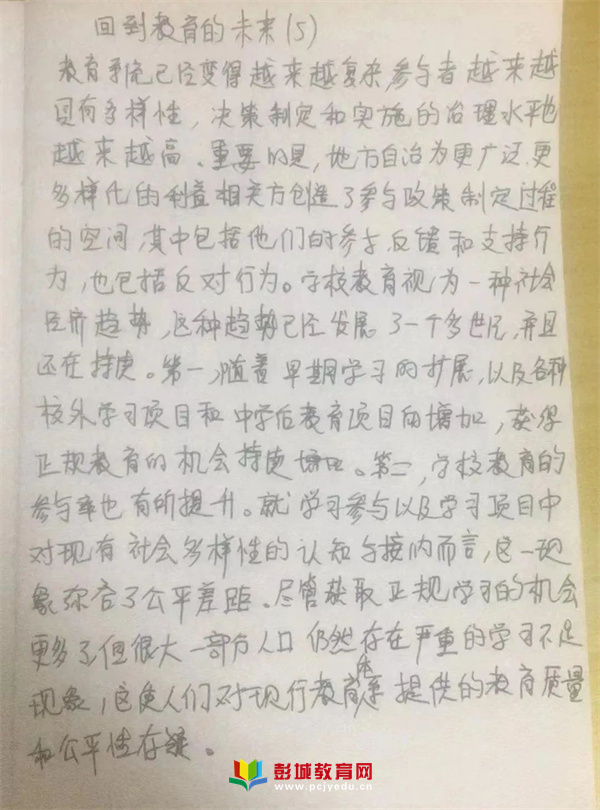 回到教育的未来(5)
教育系统已经变得越来越复杂,参与者越来越
具有多样性,决策制定和实施的治理水平也
越来越高。重要的是,地方自治为更广泛、更
多样化的利益相关方创造了参与政策制定过程
的空间,其中包括他们的参与、反馈和支持行
为,也包括反对行为。学校教育视为一种社会
经济趋势,这种趋势已经发展了一个多世纪,并且
还在持续。第一,随着早期学习的扩展,以及各种
校外学习项目和中学后教育项目的增加,获得
正规教育的机会持续增加。第二,学校教育的
参与率也有所提升。就学习参与以及学习项目中
对现有社会多样性的认知与接纳而言,这一现
象弥合了公平差距。尽管获取正规学习的机会
更多了,但很大一部分人口仍然存在严重的学习不足
现象,这使人们对现行教育体系提供的教育质量
和公平性存疑。
彭城教育网
www.pcjyedu.cn